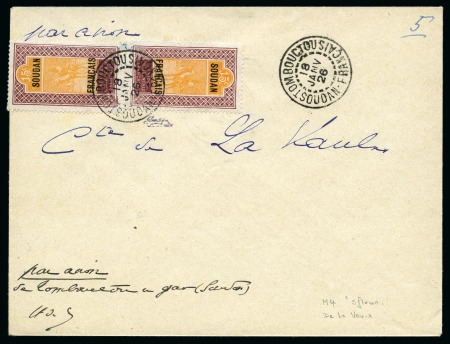 par avion
5
15c SOUDAN FRANÇAIS FRANÇAIS SOUDAN
TOMBOUCTOU SOUDAN-FRANÇAIS
18 JANV 26
TOMBOUCTOU SOUDAN-FRANÇAIS
18 JANV 26
Cte de La Vaulx
par avion
de Tombouctou a gao (Soudan)
M4
De La Vaulx